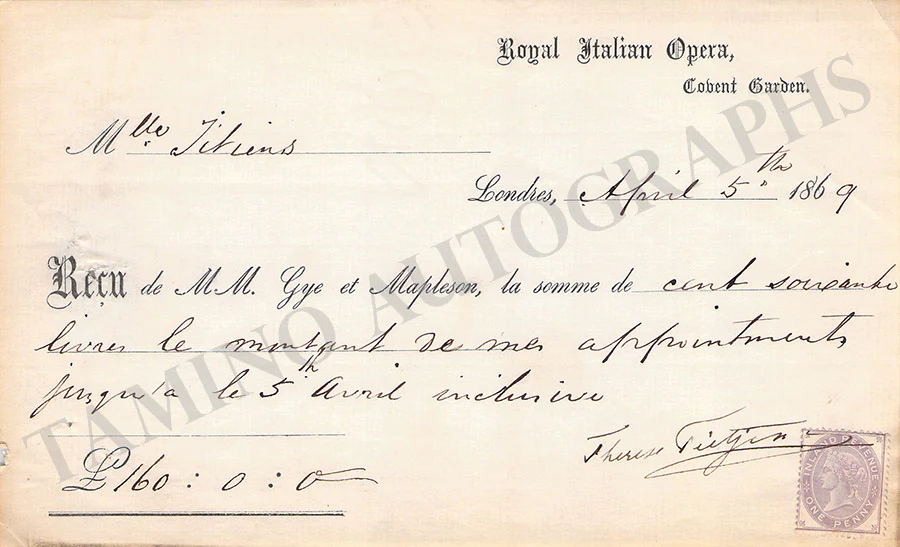 Royal Italian Opera,
Covent Garden.
Mlle Titiens
Londres, April 5th 1869
Reçu de MM. Gye et Mapleson, la somme de cent soixante
livres le montant de mes appointments
jusqu'a le 5th Avril inclusive
£160 : 0 : 0
Therese Tietjen
INLAND REVENUE
ONE PENNY
TAMINO AUTOGRAPHS